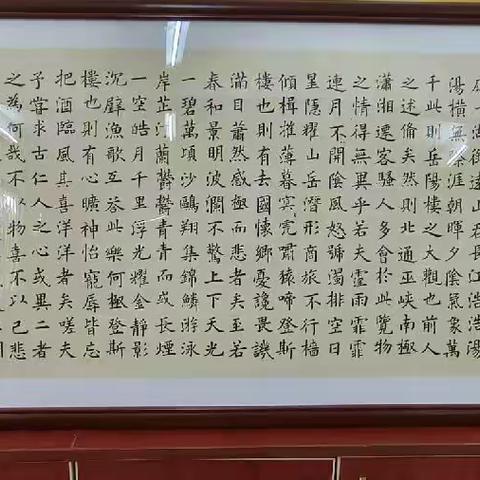 湖銜遠山吞長江浩浩湯
湯橫無際涯朝暉夕陰氣象萬
千此則岳陽樓之大觀也前人
之述備矣然則北通巫峽南極
瀟湘遷客騷人多會於此覽物
之情得無異乎若夫霪雨霏霏
連月不開陰風怒號濁排空日
星隱耀山岳潛形商旅不行檣
傾楫摧薄暮冥虎嘯猿啼登斯
樓也則有去國懷鄉憂讒畏譏
滿目蕭然感極而悲者矣至若
春和景明波瀾不驚上下天光
一碧萬頃沙鷗翔集錦鱗游泳
岸芷汀蘭鬱鬱青青而成長煙
一空皓月千里浮光耀金靜影
沉璧漁歌互答此樂何極登斯
樓也則有心曠神怡寵辱皆忘
把酒臨風其喜洋洋者矣嗟夫
予嘗求古仁人之心或異二者
之為何哉不以物喜不以己悲